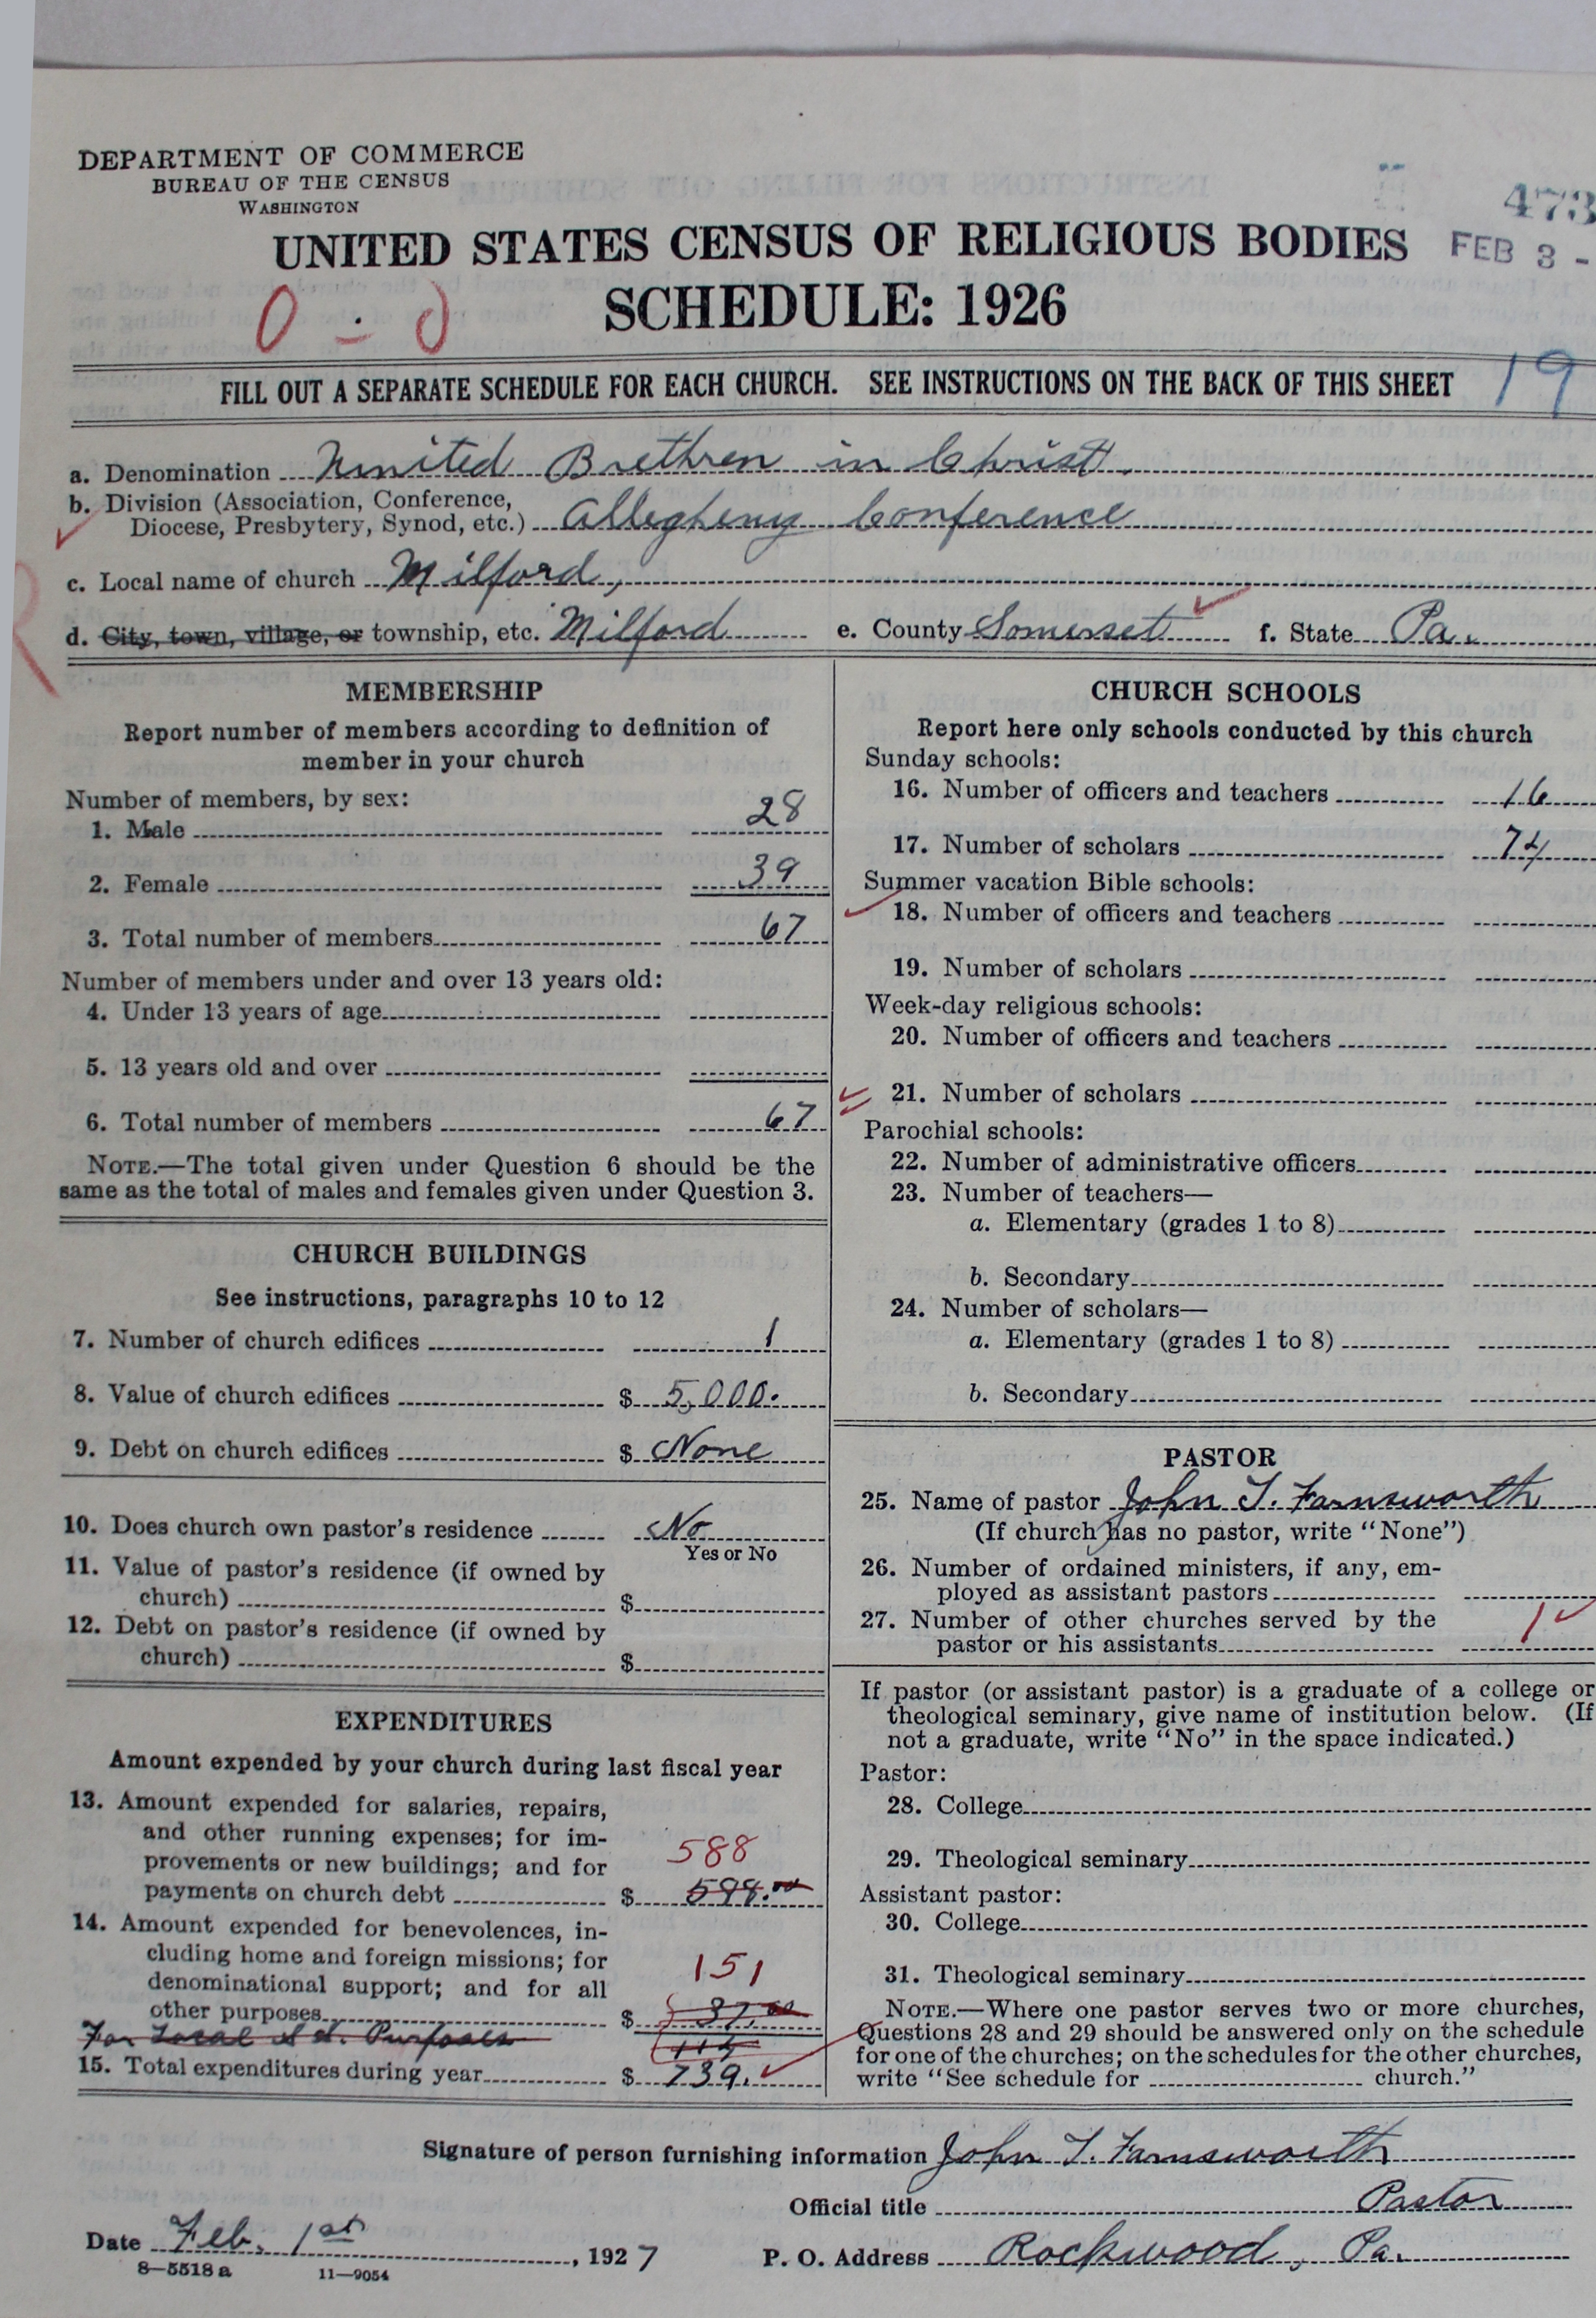 DEPARTMENT OF COMMERCE
BUREAU OF THE CENSUS
WASHINGTON
473
UNITED STATES CENSUS OF RELIGIOUS BODIES
FEB 3 -
SCHEDULE: 1926
0 - 0
FILL OUT A SEPARATE SCHEDULE FOR EACH CHURCH. SEE INSTRUCTIONS ON THE BACK OF THIS SHEET
19
a. Denomination United Brethren in Christ.
b. Division (Association, Conference,
Diocese, Presbytery, Synod, etc.) Allegheny Conference
c. Local name of church Milford,
d. City, town, village, or township, etc. Milford e. County Somerset f. State Pa.
MEMBERSHIP
Report number of members according to definition of
member in your church
Number of members, by sex:
1. Male 28
2. Female 39
3. Total number of members 67
Number of members under and over 13 years old:
4. Under 13 years of age
5. 13 years old and over
6. Total number of members 67
NOTE.—The total given under Question 6 should be the
same as the total of males and females given under Question 3.
CHURCH BUILDINGS
See instructions, paragraphs 10 to 12
7. Number of church edifices 1
8. Value of church edifices $ 5,000.
9. Debt on church edifices $ None
10. Does church own pastor's residence No
Yes or No
11. Value of pastor's residence (if owned by
church) $
12. Debt on pastor's residence (if owned by
church) $
EXPENDITURES
Amount expended by your church during last fiscal year
13. Amount expended for salaries, repairs,
and other running expenses; for im-
provements or new buildings; and for
588
payments on church debt $ 598.00
14. Amount expended for benevolences, in-
cluding home and foreign missions; for
151
denominational support; and for all
other purposes $ 37.00
For Local S. S. Purposes 114
15. Total expenditures during year $ 739.
CHURCH SCHOOLS
Report here only schools conducted by this church
Sunday schools:
16. Number of officers and teachers 16
17. Number of scholars 74
Summer vacation Bible schools:
18. Number of officers and teachers
19. Number of scholars
Week-day religious schools:
20. Number of officers and teachers
21. Number of scholars
Parochial schools:
22. Number of administrative officers
23. Number of teachers—
a. Elementary (grades 1 to 8)
b. Secondary
24. Number of scholars—
a. Elementary (grades 1 to 8)
b. Secondary
PASTOR
25. Name of pastor John I. Farnsworth
(If church has no pastor, write "None")
26. Number of ordained ministers, if any, em-
ployed as assistant pastors
27. Number of other churches served by the
pastor or his assistants 1
If pastor (or assistant pastor) is a graduate of a college or
theological seminary, give name of institution below. (If
not a graduate, write "No" in the space indicated.)
Pastor:
28. College
29. Theological seminary
Assistant pastor:
30. College
31. Theological seminary
NOTE.—Where one pastor serves two or more churches,
Questions 28 and 29 should be answered only on the schedule
for one of the churches; on the schedules for the other churches,
write "See schedule for church."
Signature of person furnishing information John I. Farnsworth
Official title Pastor
Date Feb. 1st, 1927 P. O. Address Rockwood, Pa.
8—5518 a 11—9054